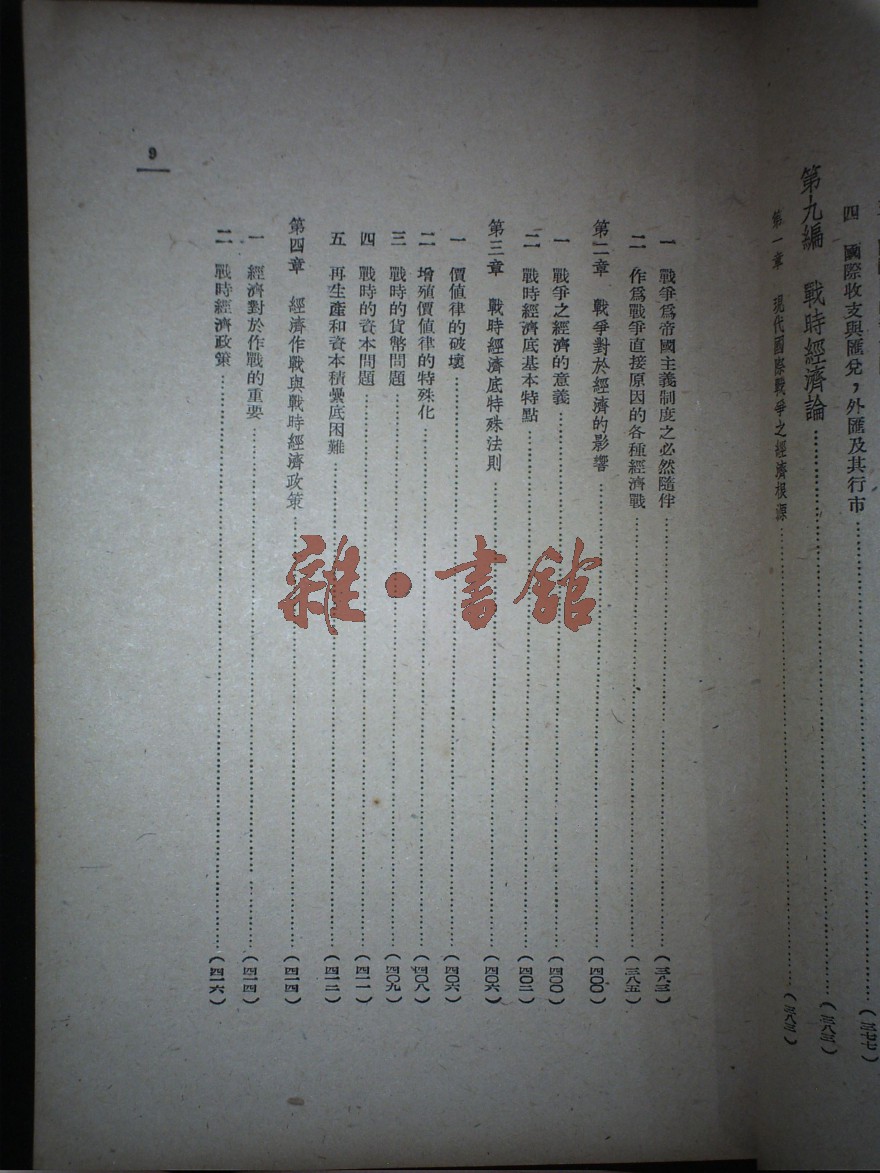 四　國際收支與匯兌，外匯及其行市……（三七七）
第九編　戰時經濟論……（三八三）
第一章　現代國際戰爭之經濟根源……（三八三）
一　戰爭爲帝國主義制度之必然隨伴……（三八三）
二　作爲戰爭直接原因的各種經濟戰……（三八五）
第二章　戰爭對於經濟的影響……（四〇〇）
一　戰爭之經濟的意義……（四〇〇）
二　戰時經濟底基本特點……（四〇二）
第三章　戰時經濟底特殊法則……（四〇六）
一　價値律的破壞……（四〇六）
二　增殖價値律的特殊化……（四〇八）
三　戰時的貨幣問題……（四〇九）
四　戰時的資本問題……（四一一）
五　再生產和資本積纍底困難……（四一二）
第四章　經濟作戰與戰時經濟政策……（四一四）
一　經濟對於作戰的重要……（四一四）
二　戰時經濟政策……（四一六）
9
雜·書館